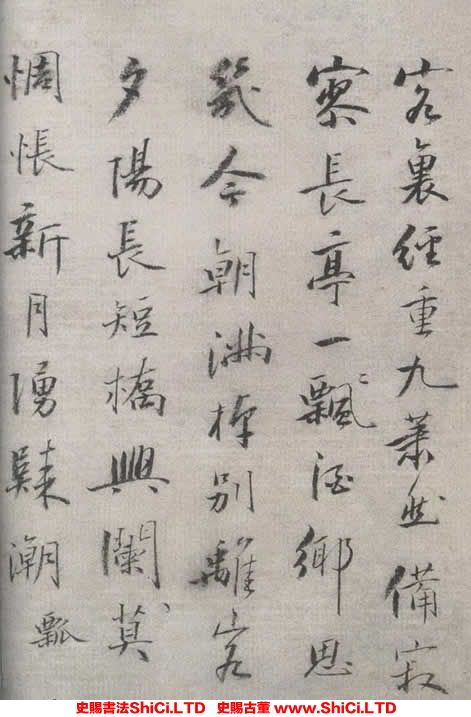 客裏經重九蕭然備寂
寥長亭一飄酒鄉思
幾今朝棹別離客
夕陽長短橋興闌莫
惆悵新月湧疑潮瓢
史賜書法ShiCi.LTD 史賜古董 www.ShiCi.LTD